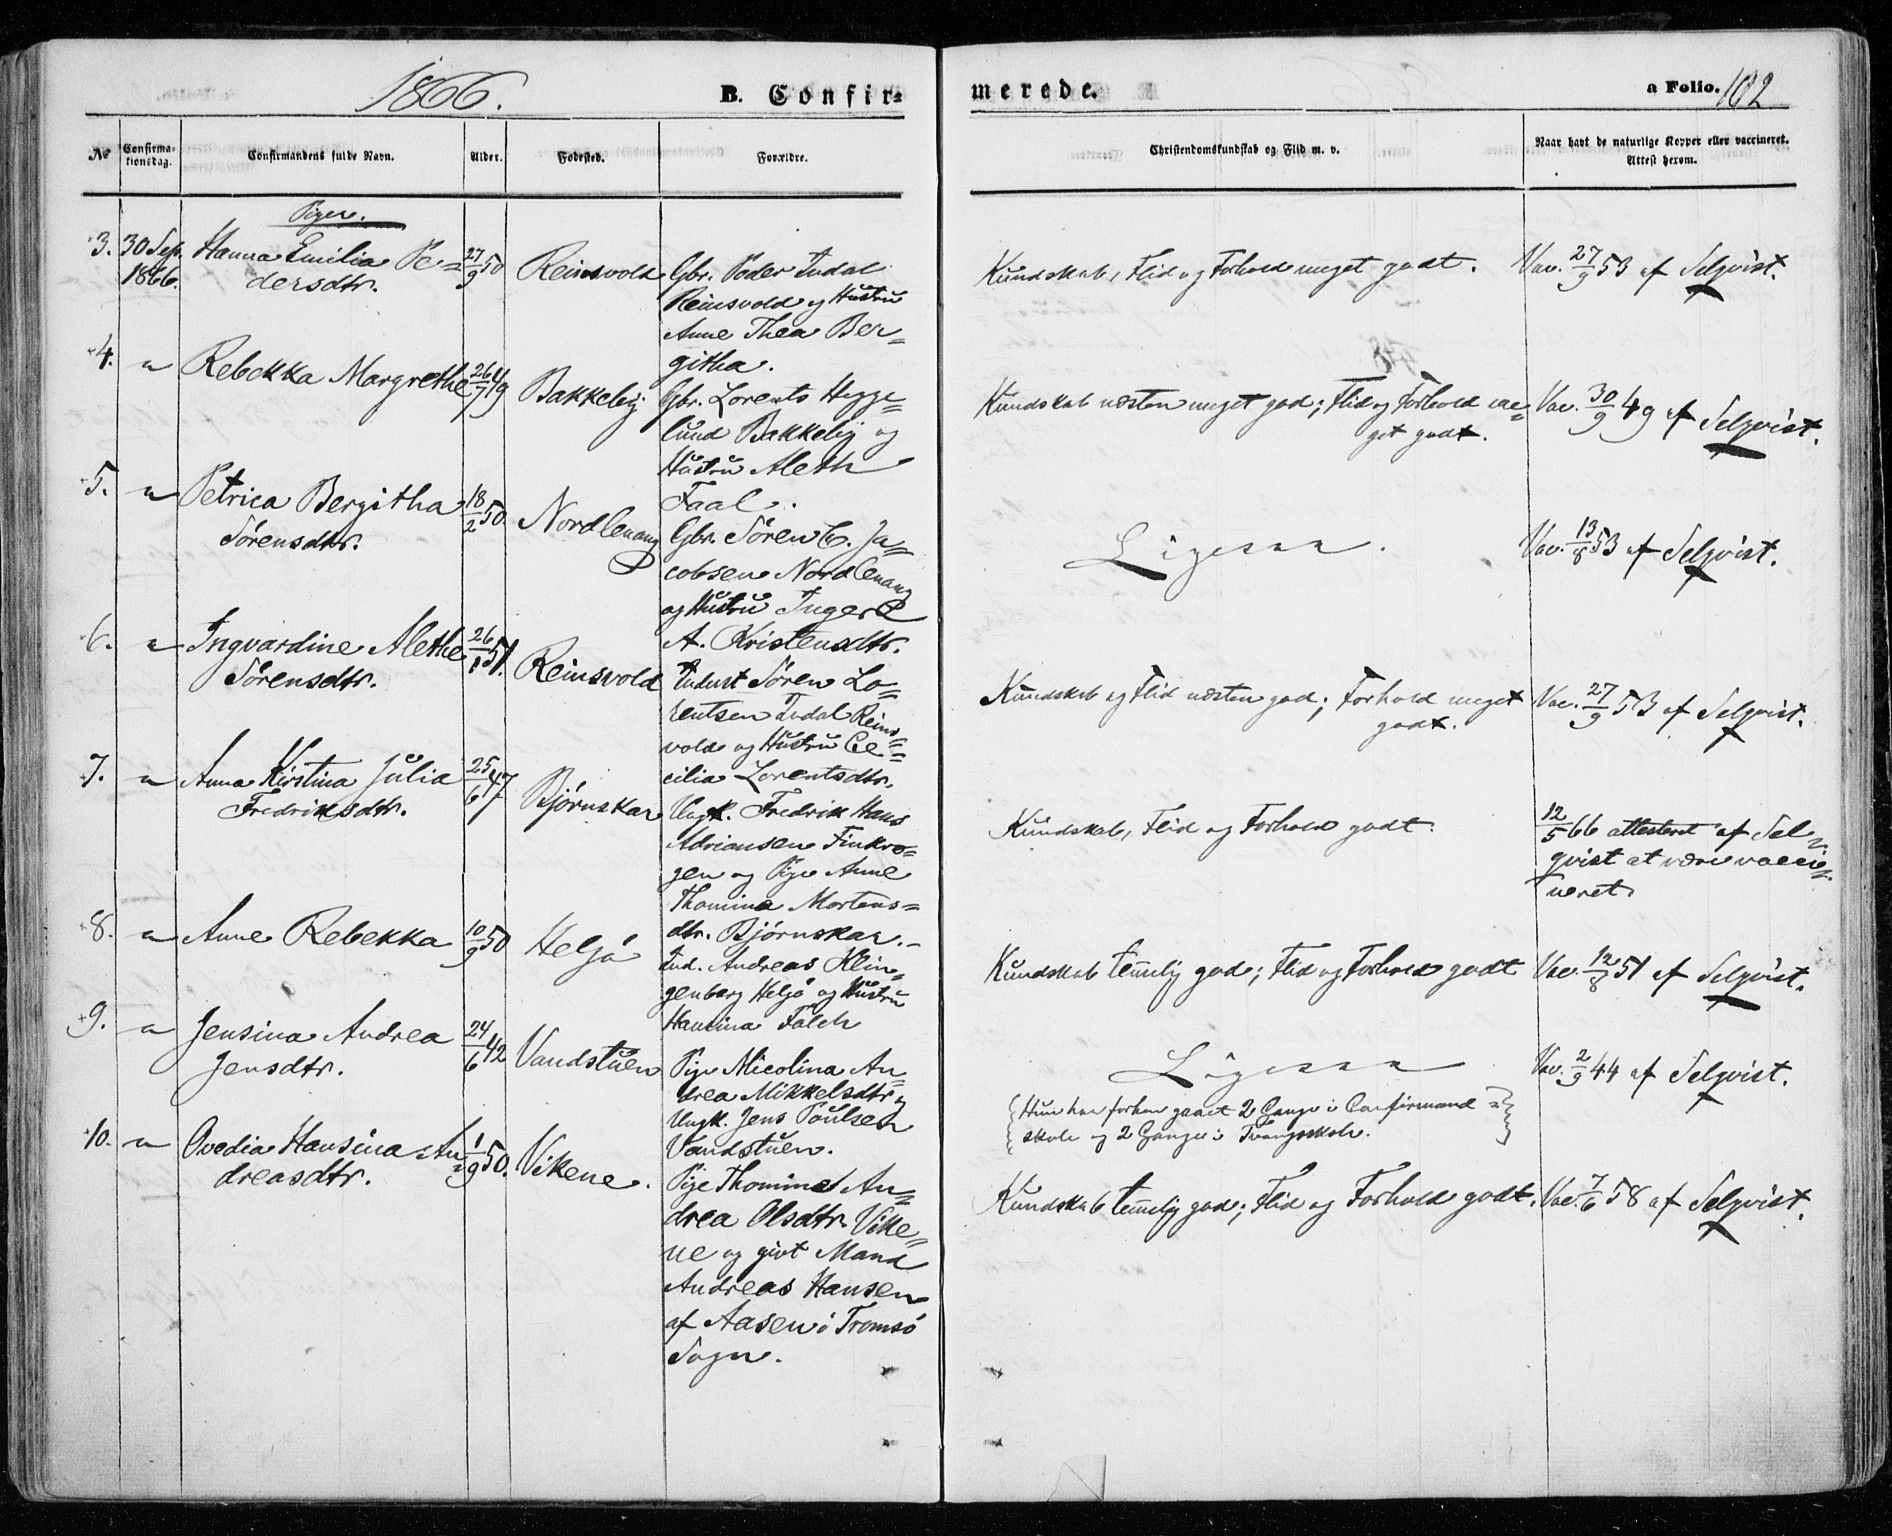 1866.
B. Confir-
merede.
a Folio. 102
No
Confirma-
tionsdag.
Confirmandens fulde Navn.
Alder.
Fødested.
Forældre.
Christendomskundskab og Flid m. v.
Naar havt de naturlige Kopper eller vaccineret.
Attest herom.
Piger.
3. 30 Sep. Hanna Emilia Pe= 27/9 50 Reinsvold Gbr. Peder Indal
1866. dersdtr. Reinsvold og Hustru
Anne Thea Ber=
githa.
Kundskab, Flid og Forhold meget godt. Vac. 27/9 53 af Selqvist.
4. " Rebekka Margrethe 26/7 49 Bakkeby Gbr. Lorents Hegge=
lund Bakkeby og
Hustru Aleth
Faal.
Kundskab næsten meget god; Flid og Forhold me= Vac. 30/9 49 af Selqvist.
get godt.
5. " Petrica Bergitha 18/2 50. Nordlenang Gbr. Sören C. Ja=
Sörensdtr. cobsen Nordlenang
og Hustru Inger
A. Kristensdtr.
Ligesaa. Vac. 13/8 53 af Selqvist.
6. " Ingvardine Alethe 26/1 51. Reinsvold Indust Sören Lo=
Sörensdtr. rentsen Indal Reins=
vold og Hustru Ce=
cilia Lorentsdtr.
Kundskab og Flid næsten god; Forhold meget Vac. 27/9 53 af Selqvist.
godt.
7. " Anna Kirstina Julia 25/6 47 Bjørnskar Ungk. Fredrik Hans
Fredriksdtr. Adriansen Finkro=
gen og Pige Anne
Thomina Mortens=
dtr. Bjørnskar.
Kundskab, Flid og Forhold godt. 12/5 66 attesteret af Sel=
qvist at være vacci=
neret
8. " Anne Rebekka 10/9 50 Heljö Ind. Andreas Klin=
genberg Heljö og Hustru
Hansina Falch
Kundskab temelig god; Flid og Forhold godt Vac. 12/8 51 af Selqvist.
9. " Jensina Andrea 24/6 42 Vandstuen Pige Nicolina An=
Jensdtr. drea Mikkelsdtr og
Ungk. Jens Poulsen
Vandstuen.
Ligesaa Vac. 2/9 44 af Selqvist.
Hun har forhen gaaet 2 Gange i Confirmand=
skole og 2 Ganger i Tvangsskole.
10. " Ovedia Hansina An= 1/9 50. Vikene. Pige Thomine An=
dreasdtr. drea Olsdtr. Vike=
ne og givt Mand
Andreas Hansen
af Aasen i Tromsö
Sogn.
Kundskab temelig god; Flid og Forhold godt. Vac. 7/6 58 af Selqvist.